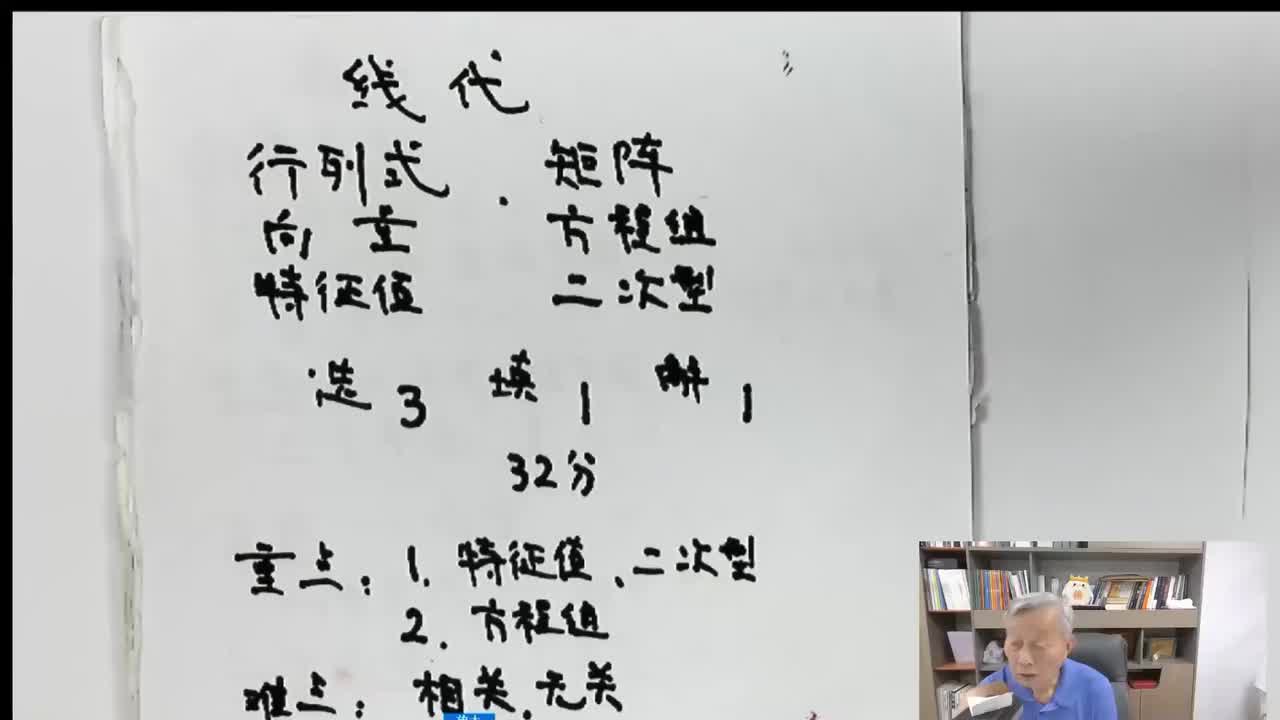 线代
行列式 . 矩阵
向量 方程组
特征值 二次型
选 3 填 1 解 1
32分
重点: 1. 特征值、二次型
2. 方程组
难点: 相关、无关